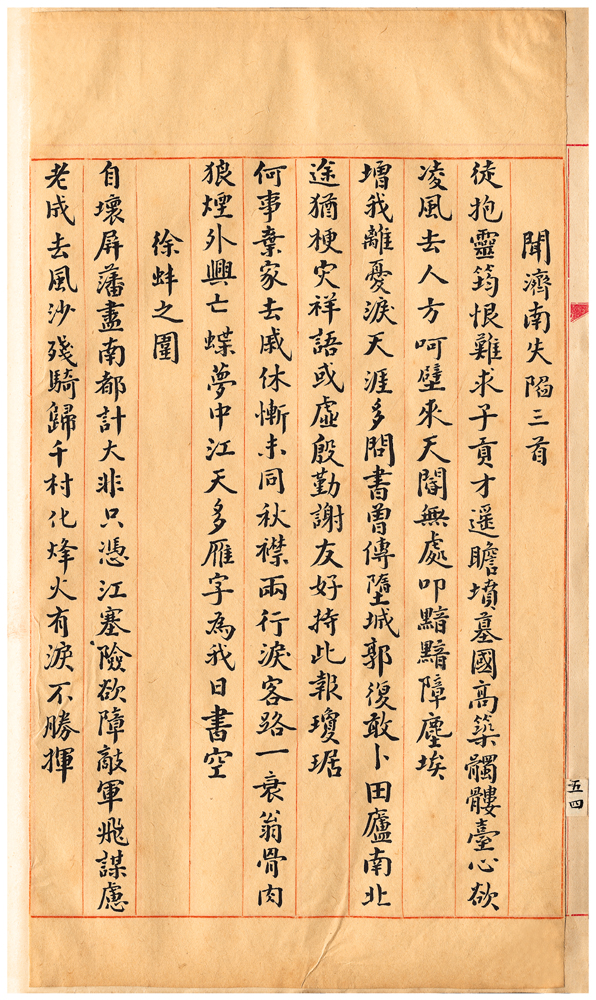 聞濟南失陷三首
徒抱靈筠恨難求子貢才遥瞻墳墓國高築髑髏臺心欲
凌風去人方呵壁來天閽無處叩黯黯障塵埃
增我離憂淚天涯多問書曾傳墮城郭復敢卜田廬南北
途猶梗灾祥語或虛殷勤謝友好持此報瓊琚
何事棄家去戚休慚未同秋襟兩行淚客路一衰翁骨肉
狼煙外興亡蝶夢中江天多雁字為我日書空
徐蚌之圍
自壞屏藩盡南都計大非只憑江塞險欲障敵軍飛謀慮
老成去風沙殘騎歸千村化烽火有淚不勝揮
五四